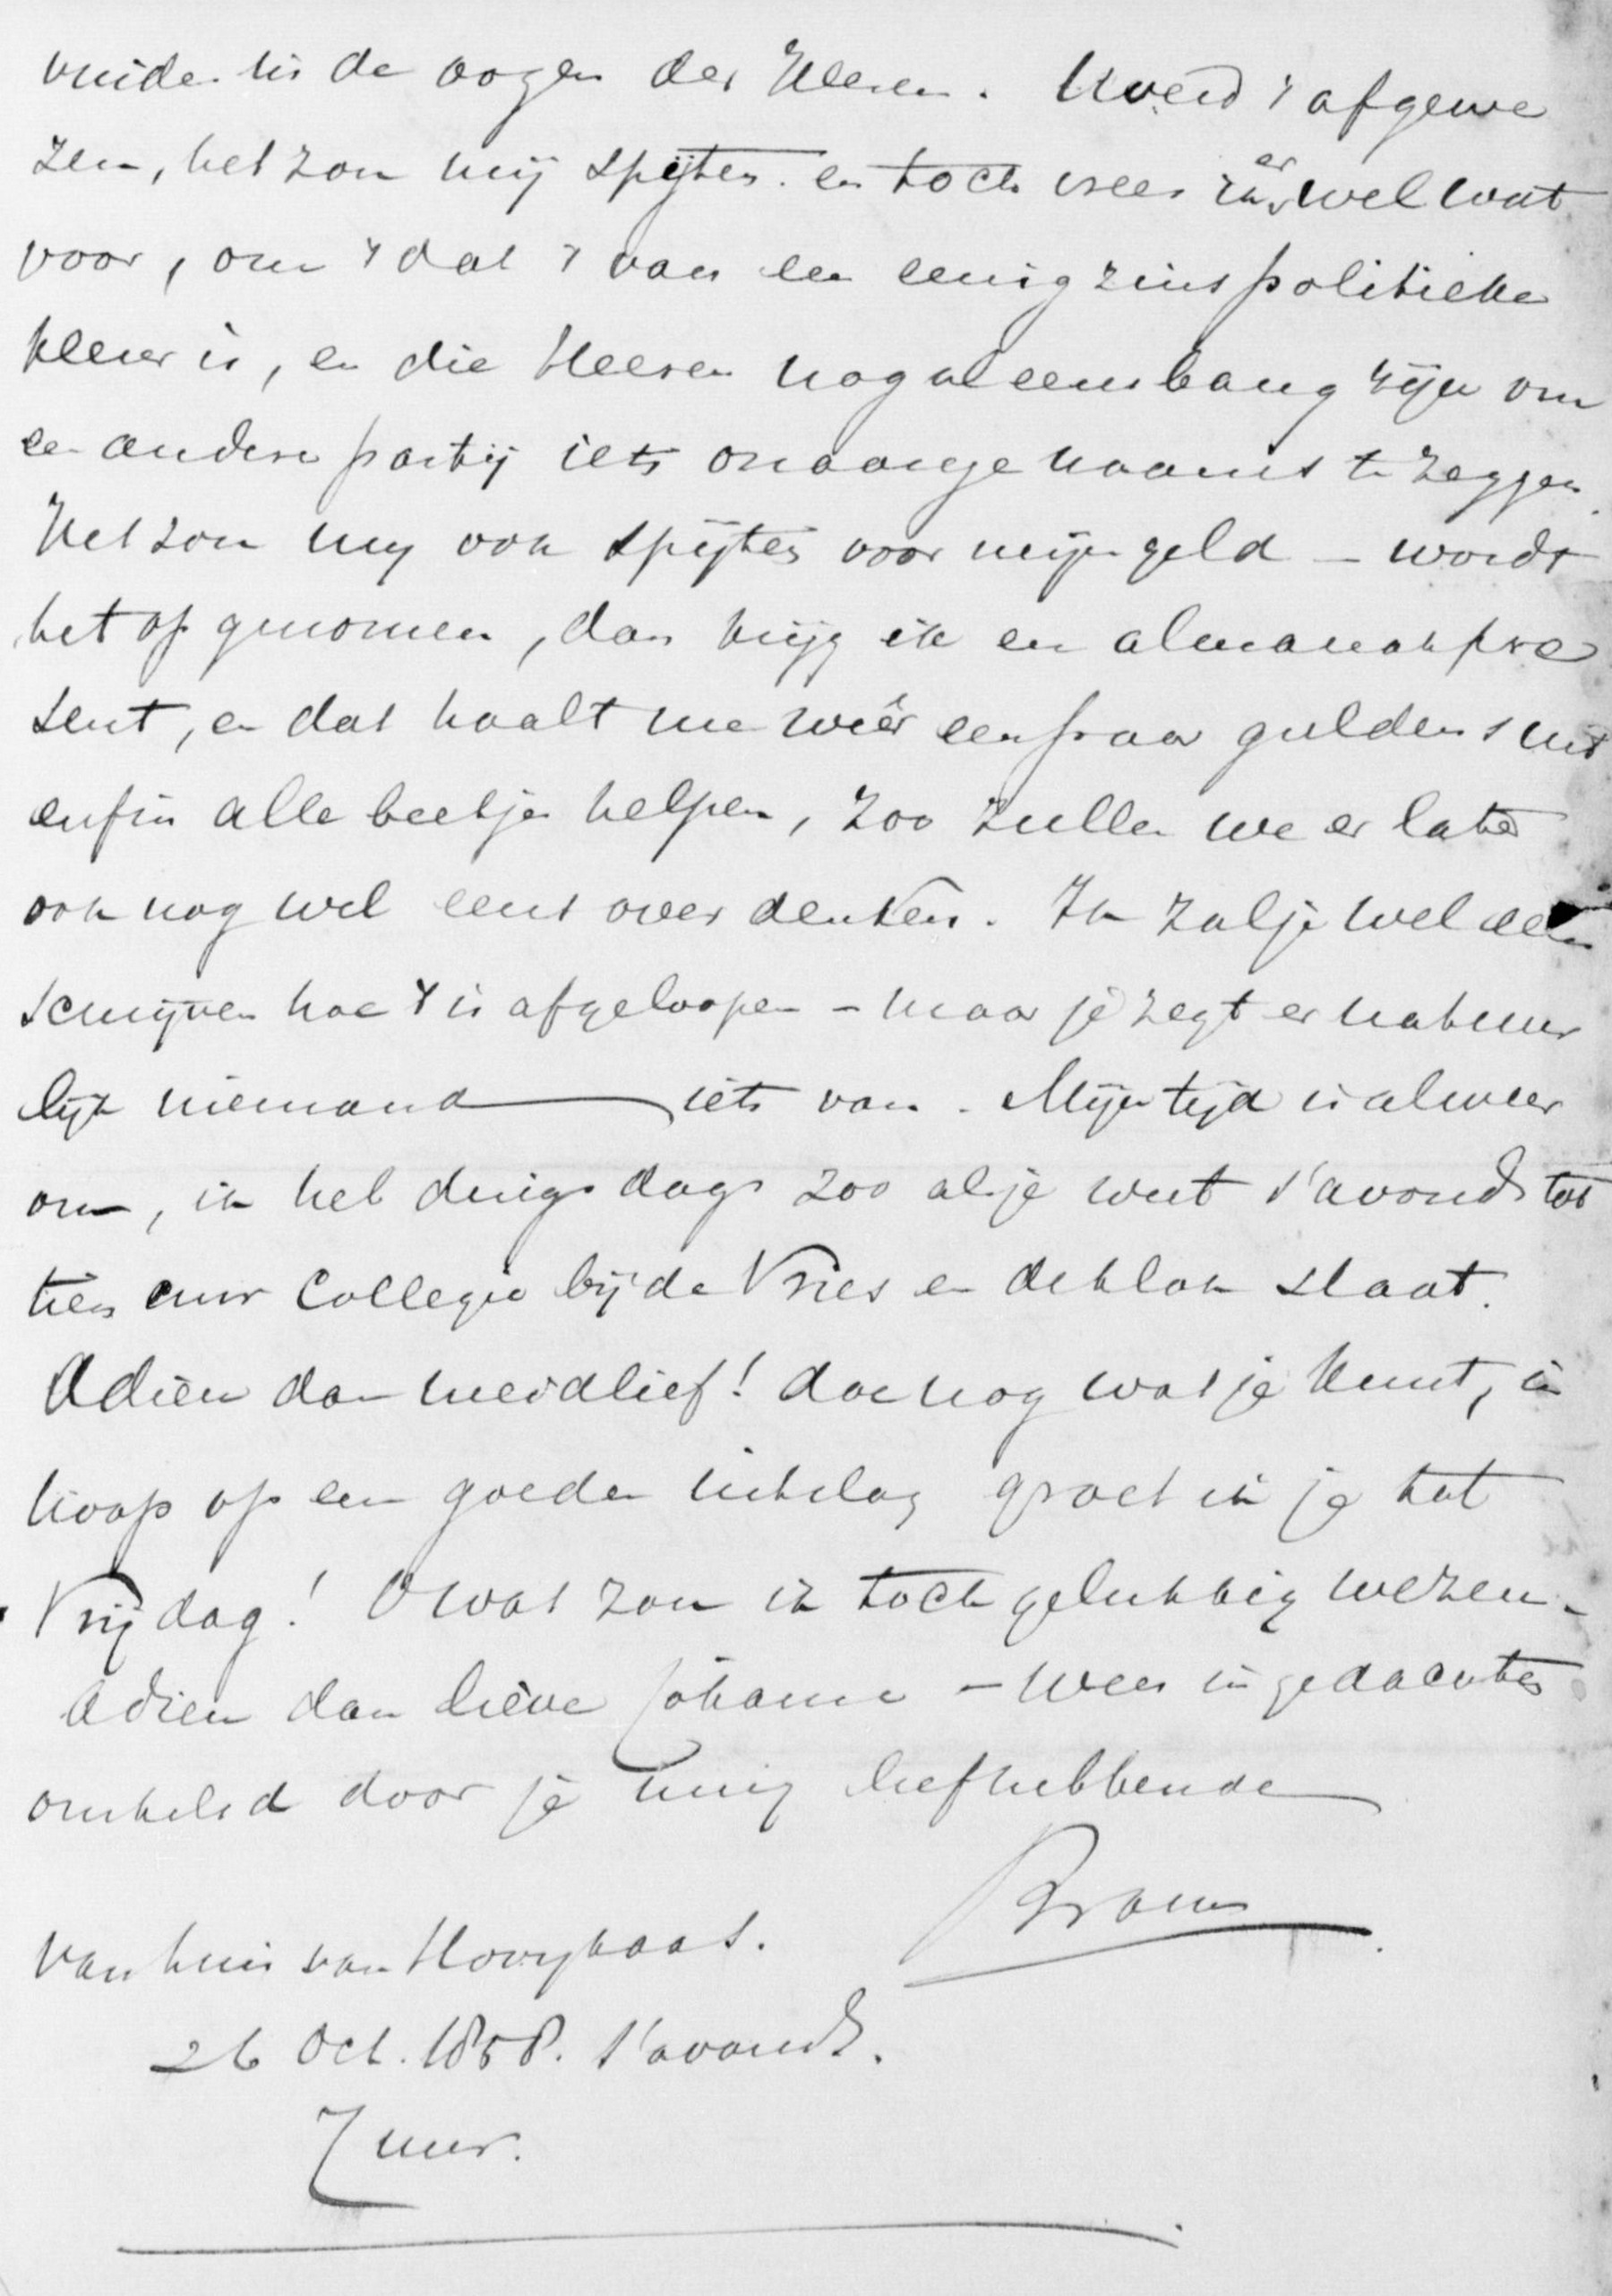 vinden in de oogen der Heeren. Werd 't afgewe
zen, het zou mij spijten. en toch vrees ik er wel wat
voor, om 't dat 't van een eenigzins politieke
kleur is, en die Heeren nogal eens bang zijn om
een andere partij iets onaangenaams te zeggen.
Het zou my ook spijten voor mijn geld – wordt
het op genomen, dan krijg ik een almanak pre
sent, en dat haalt me weêr een paar guldens uit
enfin alle beetjes helpen, zoo zullen we er later
ook nog wel eens over denken. Ik zal je wel
schrijven hoe 't is afgeloopen – maar je zegt er natuur
lijk niemand iets van. Mijn tijd is alweer
om, ik heb dingsdags zoo als je weet s'avonds tot
tien uur Collegie bij de Vries en de klok slaat.
Adieu dan meidlief! doe nog wat je kunt, in
hoop op een goeden uitslag groet ik je tot
Vrijdag! O wat zou ik toch gelukkig wezen –
Adieu dan lieve Johanna – wees in gedachten
omhelsd door je innig liefhebbende
Bram.
Van huis van Hooykaas.
26 Oct. 1858. s'avonds.
7 uur.